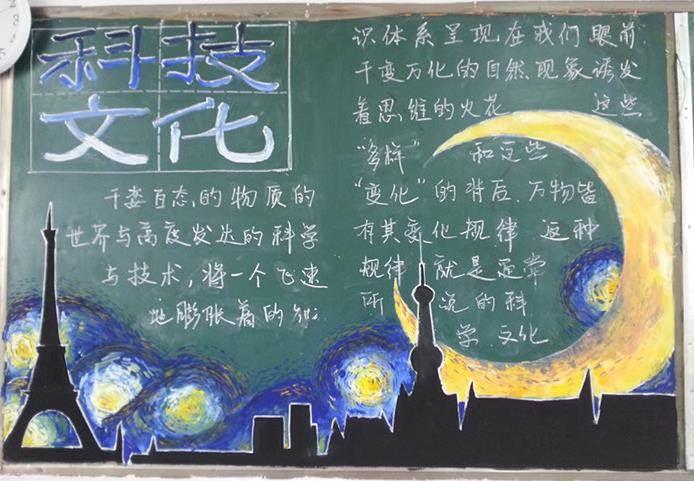 科技
文化
千姿百态的物质的
世界与高度发达的科学
与技术,将一个飞速
地膨胀着的知
识体系呈现在我们眼前
千变万化的自然现象诱发
着思维的火花 这些
“多样” 和这些
“变化”的背后,万物皆
有其变化规律 这种
规律 就是通常
所 说的科
学 文化